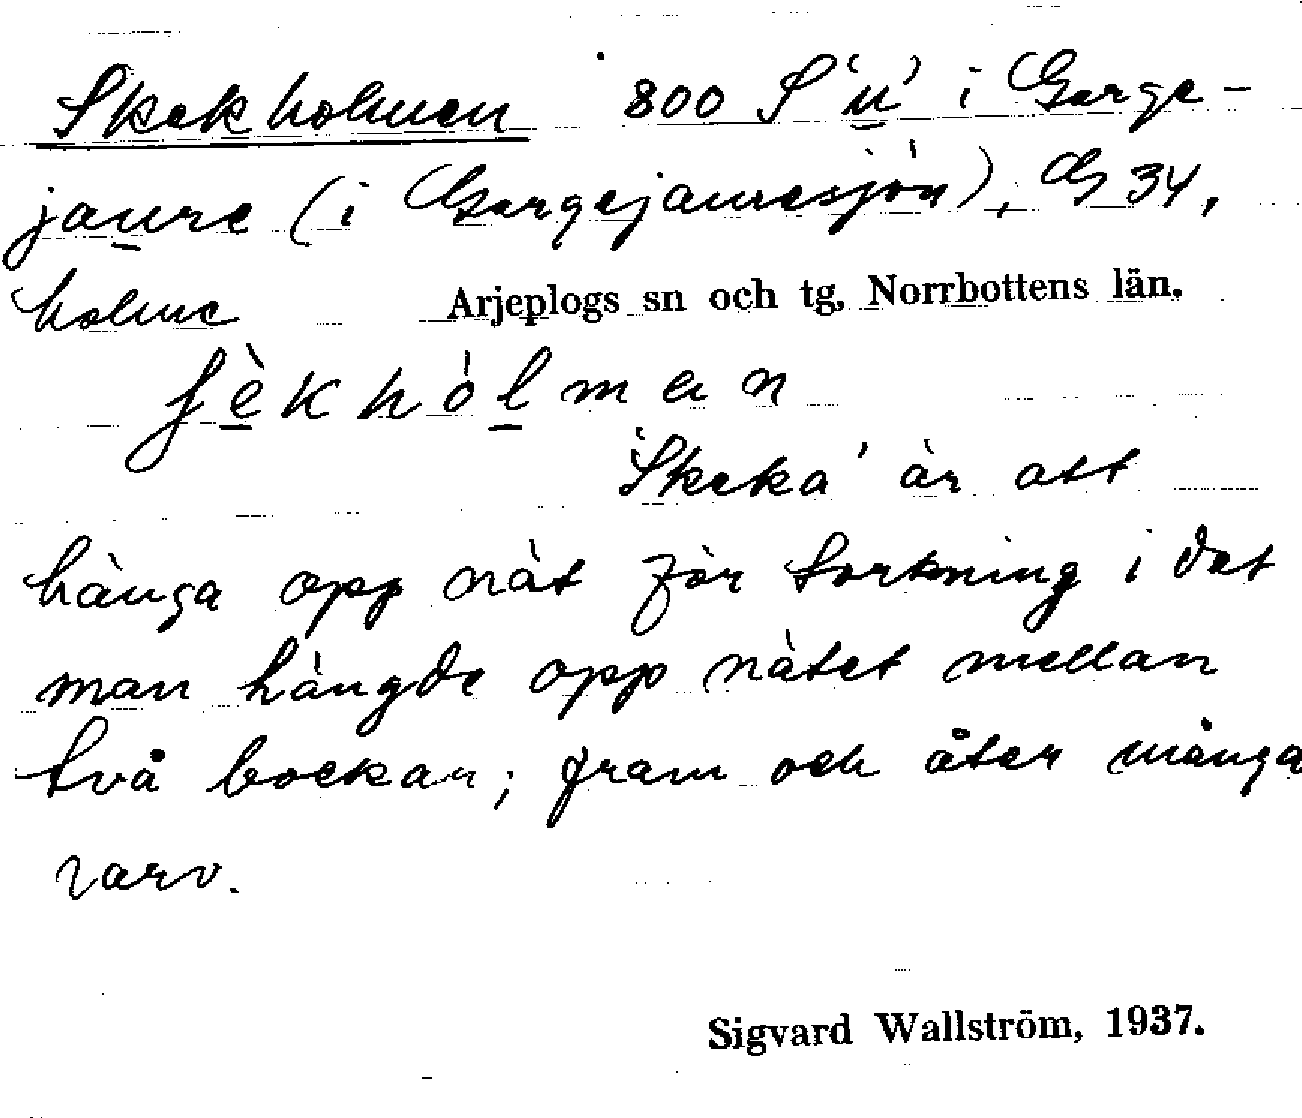 Skekholmen 800 S 'u' i Gerge-
jaure (i Gergejauresjön), G 34,
holme Arjeplogs sn och tg, Norrbottens län.
ʃèkhòlmen
'Skeka' är att
hänga opp nät för torkning i det
man hängde opp nätet mellan
två bockar; fram och åter många
varv.
Sigvard Wallström, 1937.